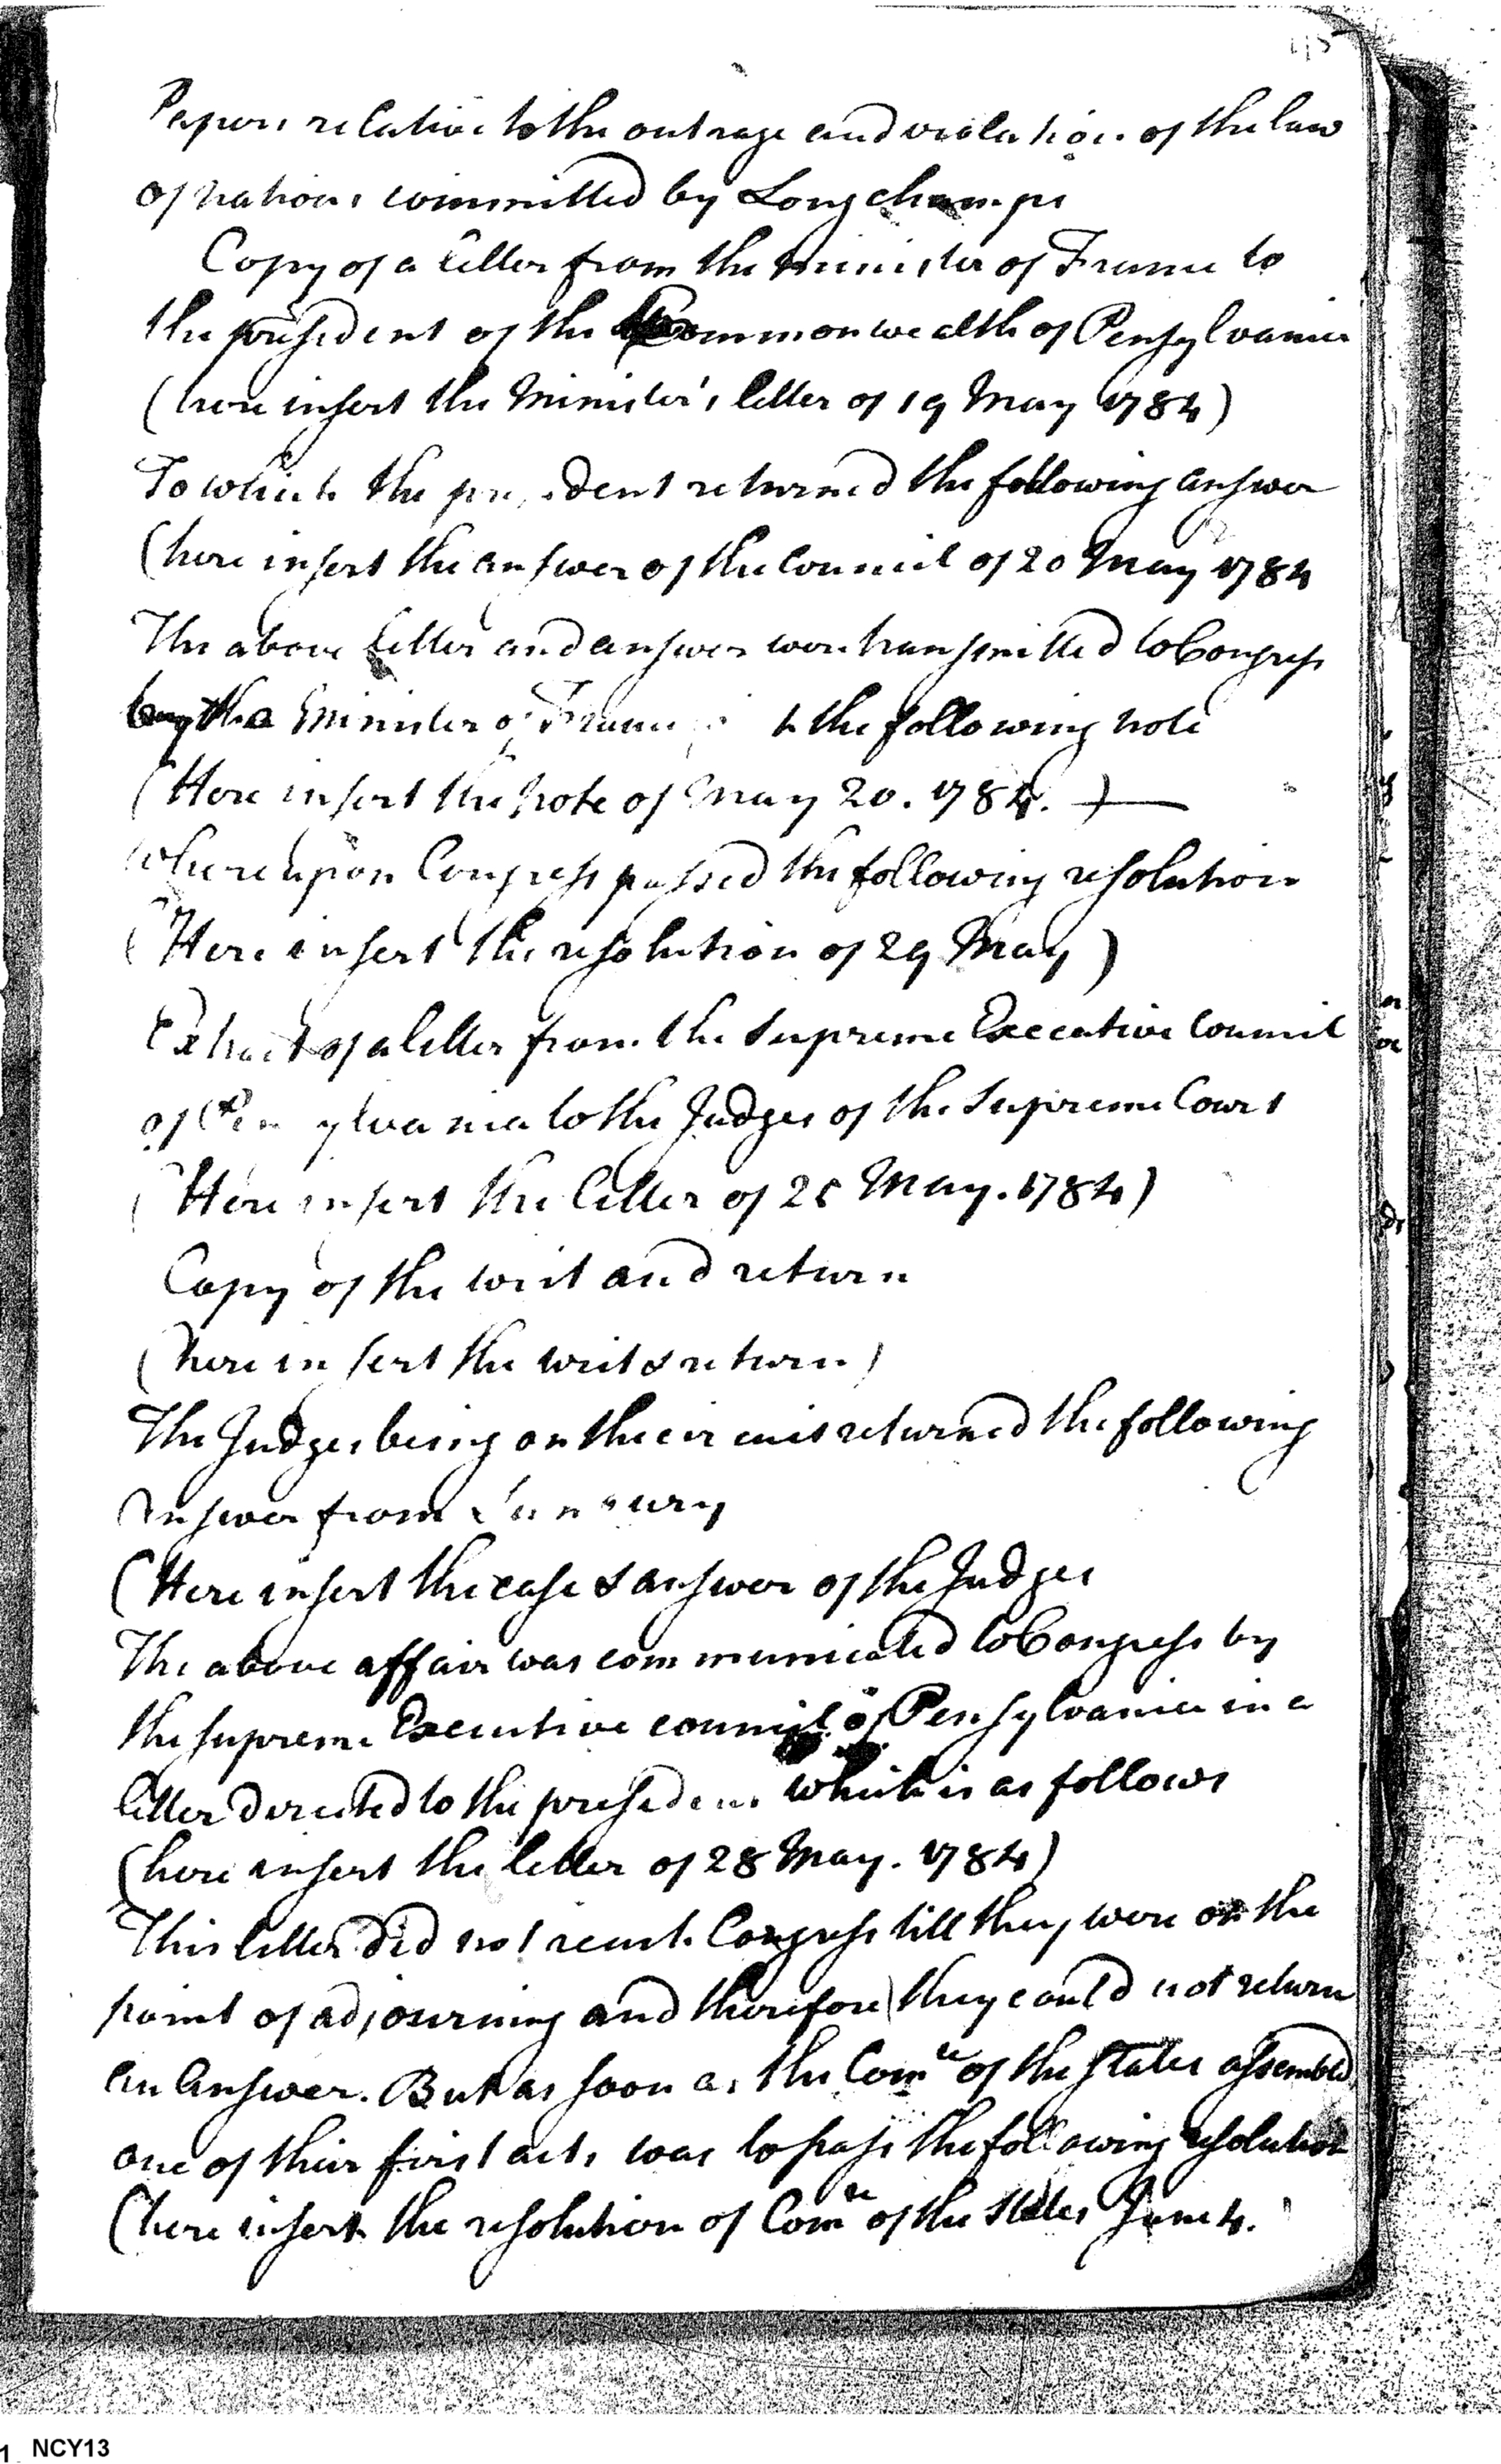 45
Papers relative to the outrage and violation of the law
of nations committed by Longchamps
Copy of a letter from the minister of France to
the president of the Commonwealth of Pensylvania
(here insert the Minister's letter of 19 May 1784)
To which the president returned the following answer
(here insert the answer of the Council of 20 May 1784
The above letter and answer were transmitted to Congress
by the Minister of France the following note
(Here insert the note of May 20. 1784.)
Whereupon Congress passed the following resolution
(Here insert the resolution of 29 May)
Extract of a letter from the Supreme Executive Council
of Pensylvania to the Judges of the Supreme Court
(Here insert the letter of 28 May. 1784)
Copy of the writ and return
(here insert the writ & return)
The Judges being on the circuit returned the following
answer from Sunbury
(Here insert the case & answer of the Judges
The above affair was communicated to Congress by
the supreme Executive council of Pensylvania in a
letter directed to the president which is as follows
(here insert the letter of 28 May. 1784)
This letter did not reach Congress till they were on the
point of adjourning and therefore they could not return
an answer. But as soon as the Comee of the states assembled
one of their first acts was to pass the following resolution
(here insert the resolution of Comee of the states June 4.
1 NCY13